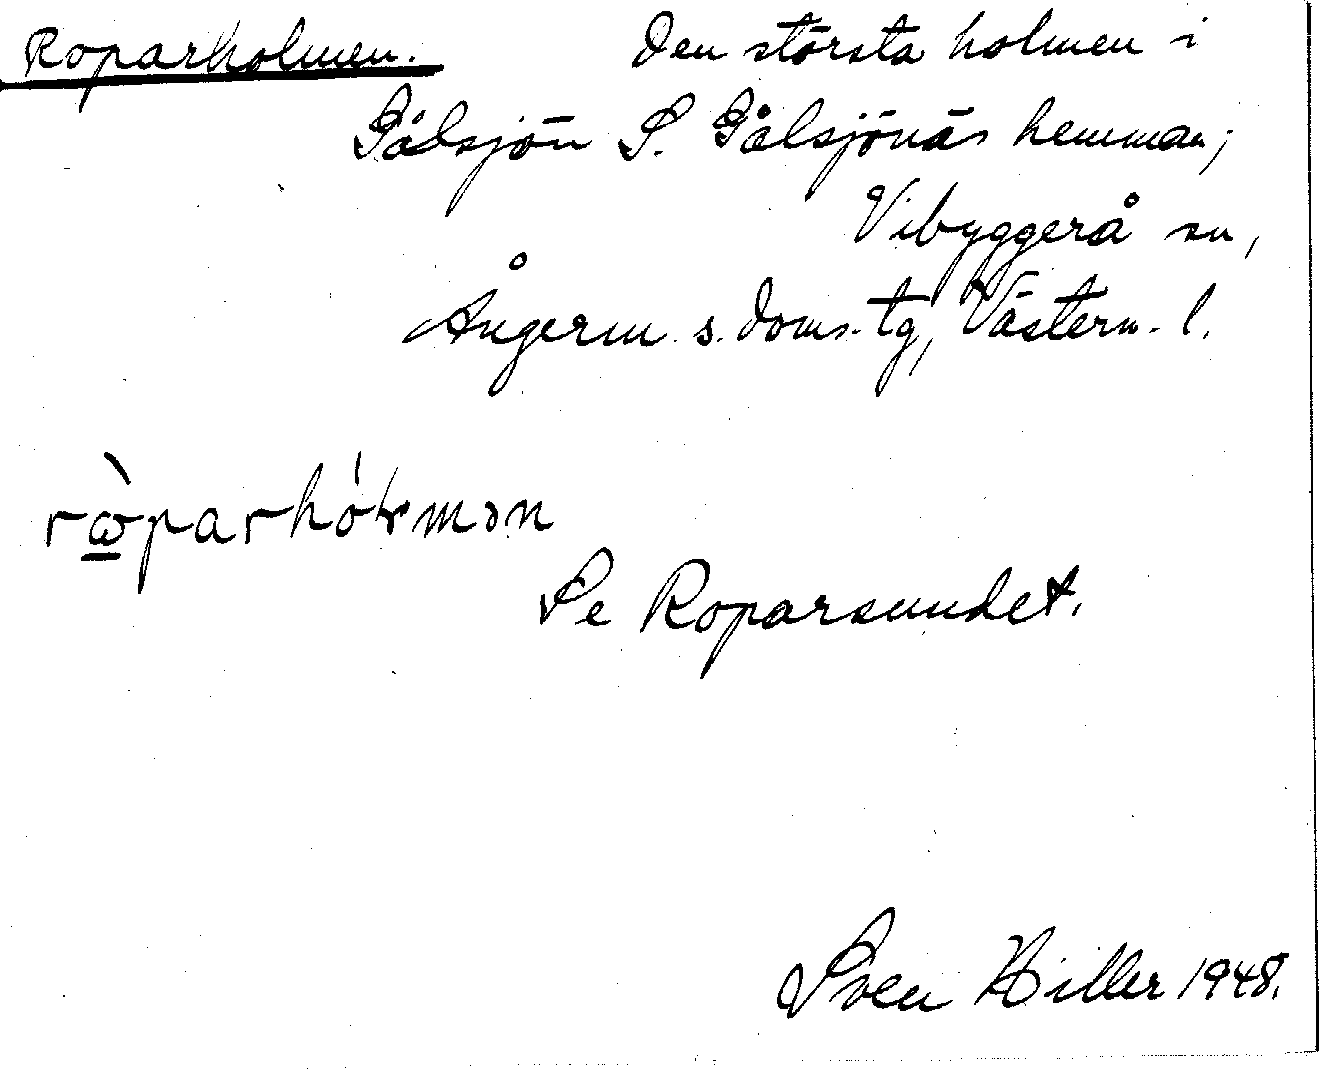 Roparholmen. Den största holmen i
Gålsjön S. Gålsjönäs hemman;
Vibyggerå sn,
Ångerm. s. doms. tg, Västern. l.
rὼparhóɬmən
Se Roparsundet.
Sven Hiller 1948.